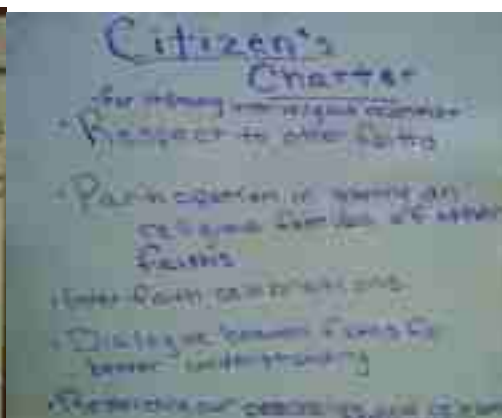 Citizen's
Charter
for strong inter religious
• Respect to other faiths
• Participation in
religious families of other
faiths
• Inter faith celebrations
• Dialogue between faiths for
better understanding
• our and